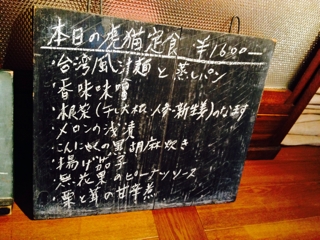 本日の虎猫定食 ¥1600—
・台湾風汁麺と蒸しパン
・香味味噌
・根菜(干し大根、人参、新生姜)のなます
・メロンの浅漬
・こんにゃくの黒胡麻炊き
・揚げ茄子
・無花果のピーナツソース
・栗と茸の甘辛煮